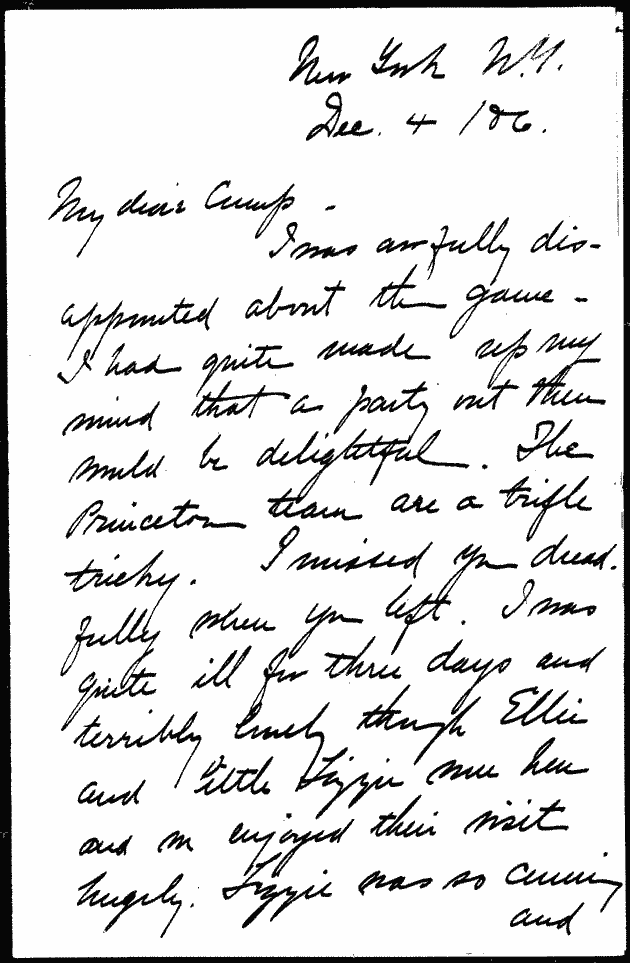 New York N.Y.
Dec. 4 /86.
My dear Cump -
I was awfully dis-
appointed about the game -
I had quite made up my
mind that a party out there
would be delightful. The
Princeton team are a trifle
tricky. I missed you dread-
fully when you left. I was
quite ill for three days and
terribly lonely though Ellie
and little Lizzie were here
and we enjoyed their visit
hugely. Lizzie was so cunning
and